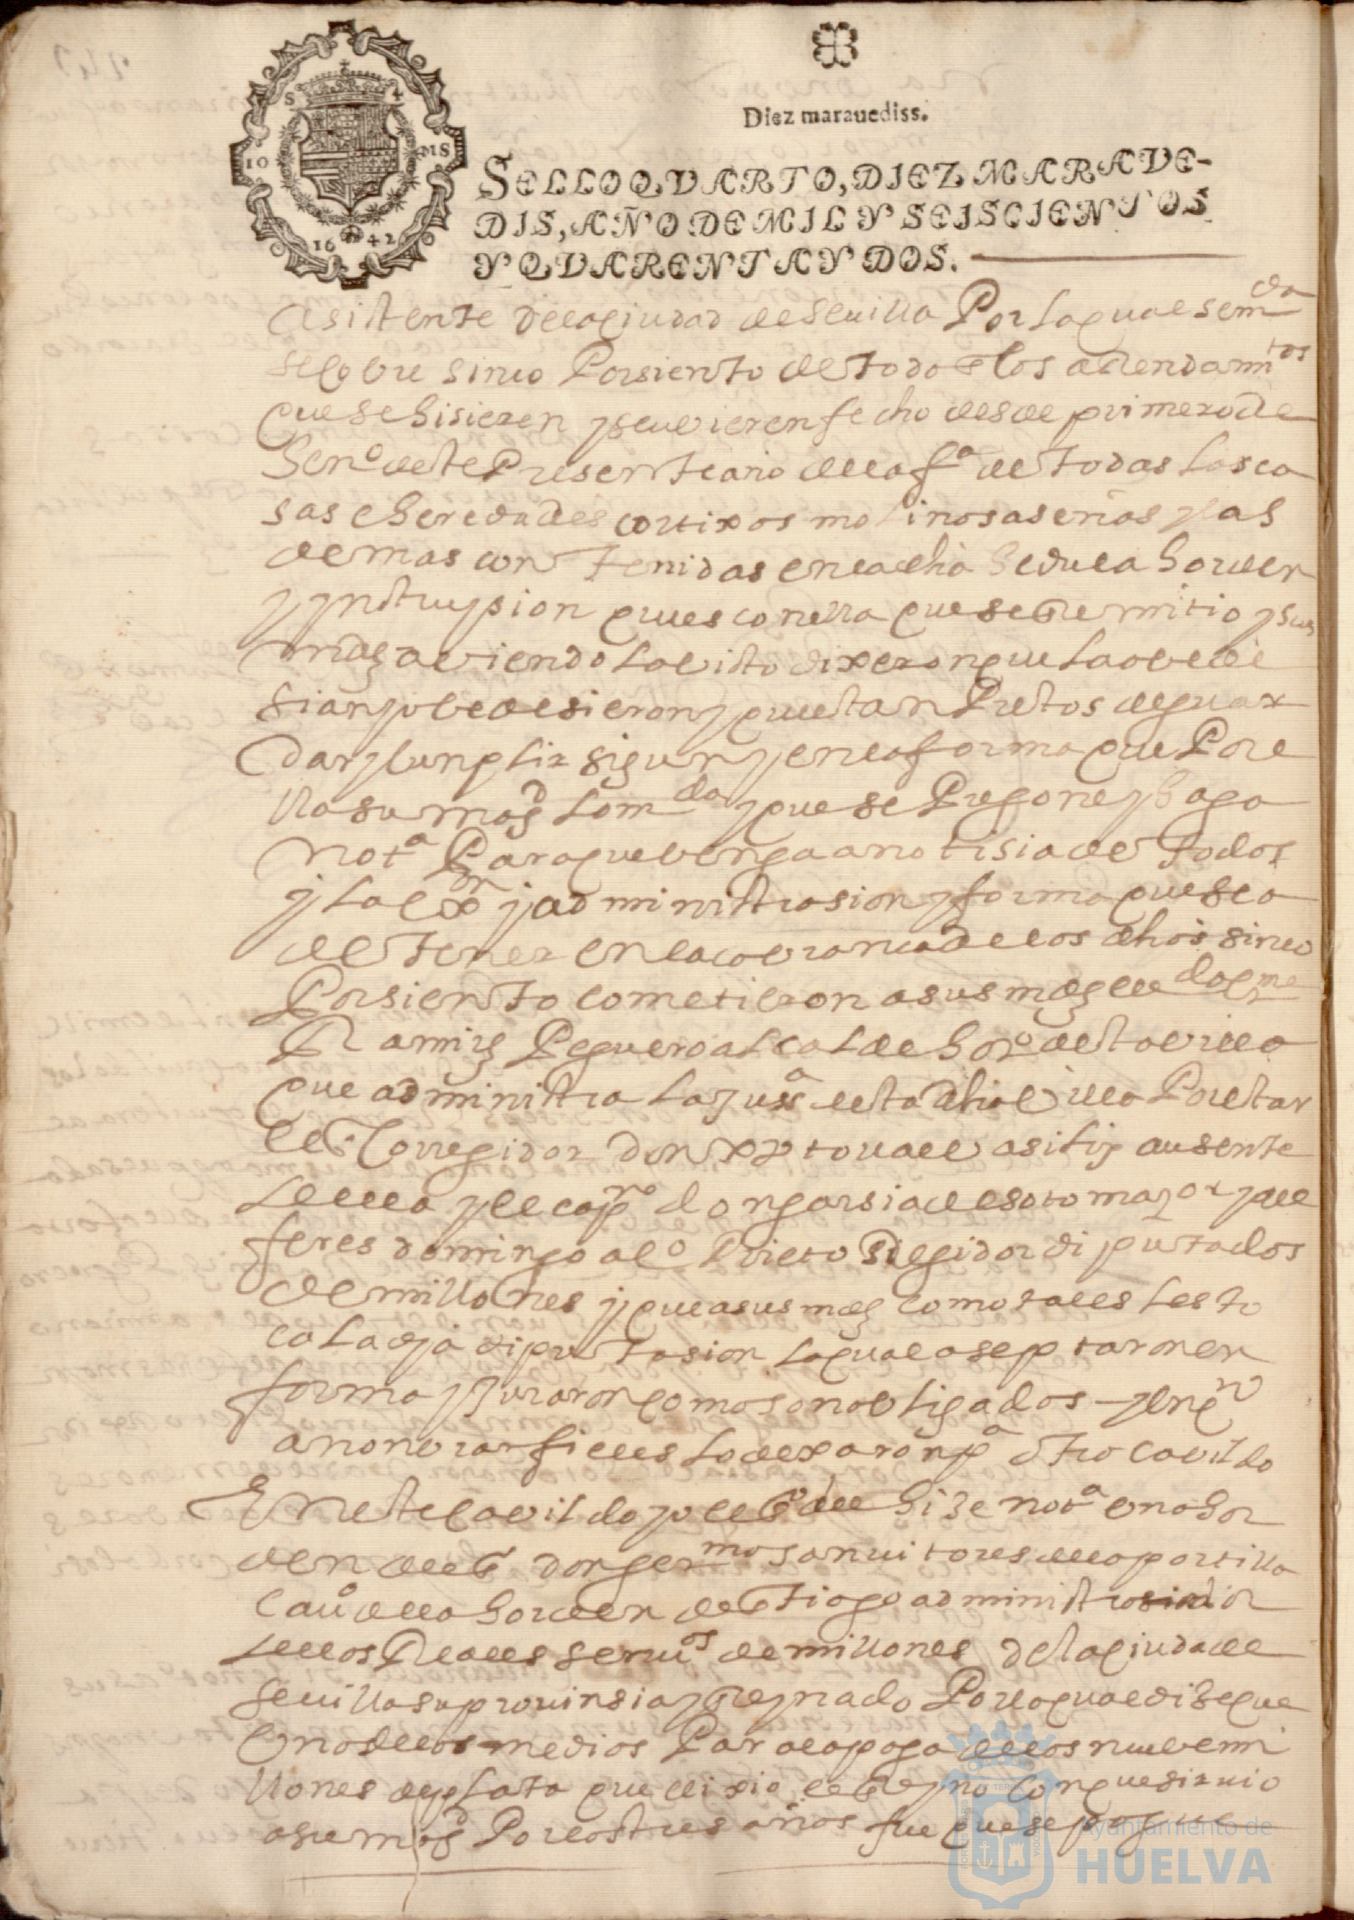 Diez marauediss.
SELLO QVARTO, DIEZ MARAVE-
DIS, AÑO DE MIL Y SEISCIENTOS
Y QVARENTA Y DOS.
S 4
10 MS
1642
asistente de la çiudad de Seuilla Por la qual se mda
se cobre sinco Porsiento de todos los arrendamitos
que se hisieren y se uvieren fecho desde primero de
Henº deste Presente año de la fª de todas las ca
sas e heredades cortixos molinos aseñas y las
demas contenidas en la dha sedula horden
y ynstruysion ques con ella que se le rremitio y sus
mds aviendola visto dixeron que la obede
sian y obedesieron y questan Prestos de guar
dar y cunplir sigun y en la forma que Pore
lla su magd lo mda y que se Pregone y haga
notª Para que benga a notisia de todos
y la exon y administrasion y forma que se a
de tener en la cobransa de los dhos sinco
Porsiento cometieron a sus mds el do
Ramis Peguero alcalde horº desta villa
que administra la jusª desta dha villa Por estar
el Corregidor don xptoval asitis ausente
della y el capn don garsia de sotomayor y al
feres domingo alº Prieto Regidor diputados
de millones y que a sus mds como tales les to
ca la dha diputasion la qual aseptaron en
forma y juraron como son obligados - y en qto
a nonbrar fieles lo dexaron pª otro cavildo
En este cavildo yo el esno del hise notª una hor
den del sr don germo sanuitores de la portilla
cavº de la horden de santiago administrador
de los Reales servios de millones desta çiudad de
Seuilla su prouinsia y Reynado Por la qual dise que
uno de los medios Para la paga de los nuebe mi
llones de plata que elixio el Reyno con que siruio
a su magd Por estos tres años fue que se pague
Ayuntamiento de
HUELVA